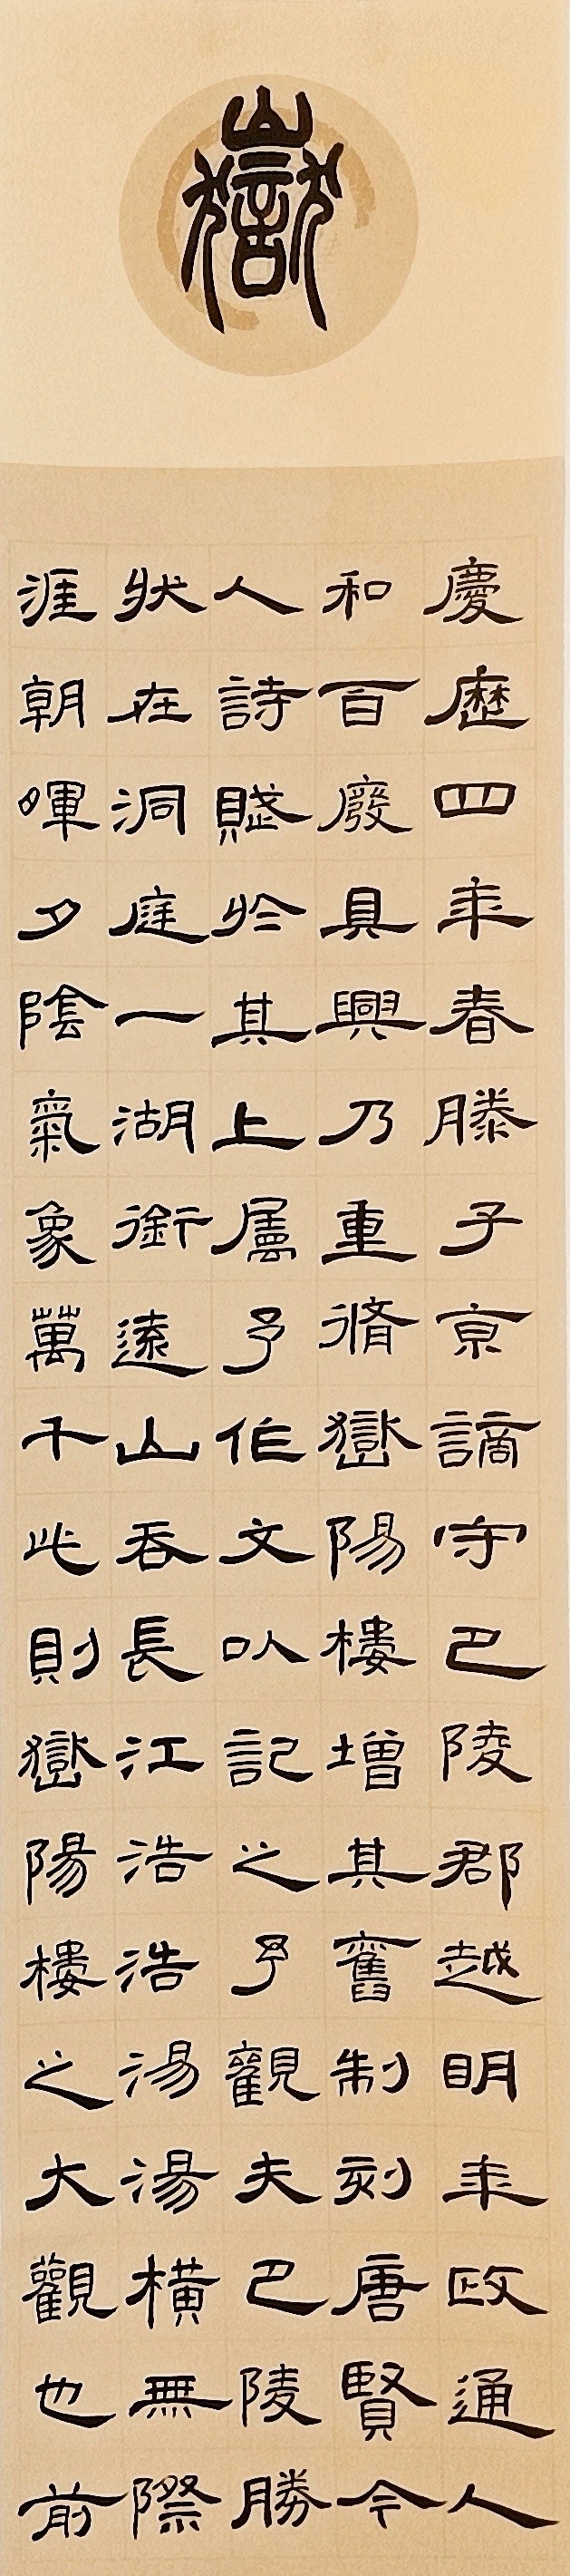 嶽
慶歷四年春滕子京謫守巴陵郡越明年政通人
和百廢具興乃重脩嶽陽樓增其舊制刻唐賢今
人詩賦於其上屬予作文以記之予觀夫巴陵勝
狀在洞庭一湖銜遠山吞長江浩浩湯湯橫無際
涯朝暉夕陰氣象萬千此則嶽陽樓之大觀也前